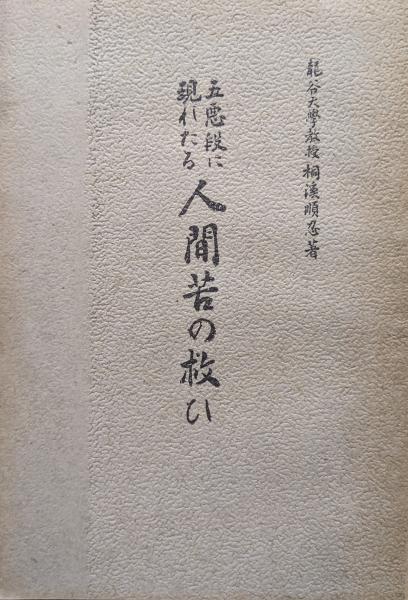 龍谷大學教授 桐溪順忍著
五悪段に
現れたる
人間苦の救ひ